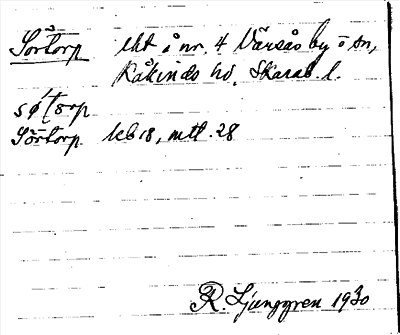 Sörtorp lht å nr. 4 Värsås by o sn,
Kåkinds hd, Skarab. l.
sø´torp
Sörtorp kb 18, mtl. 28
R Ljunggren 1930